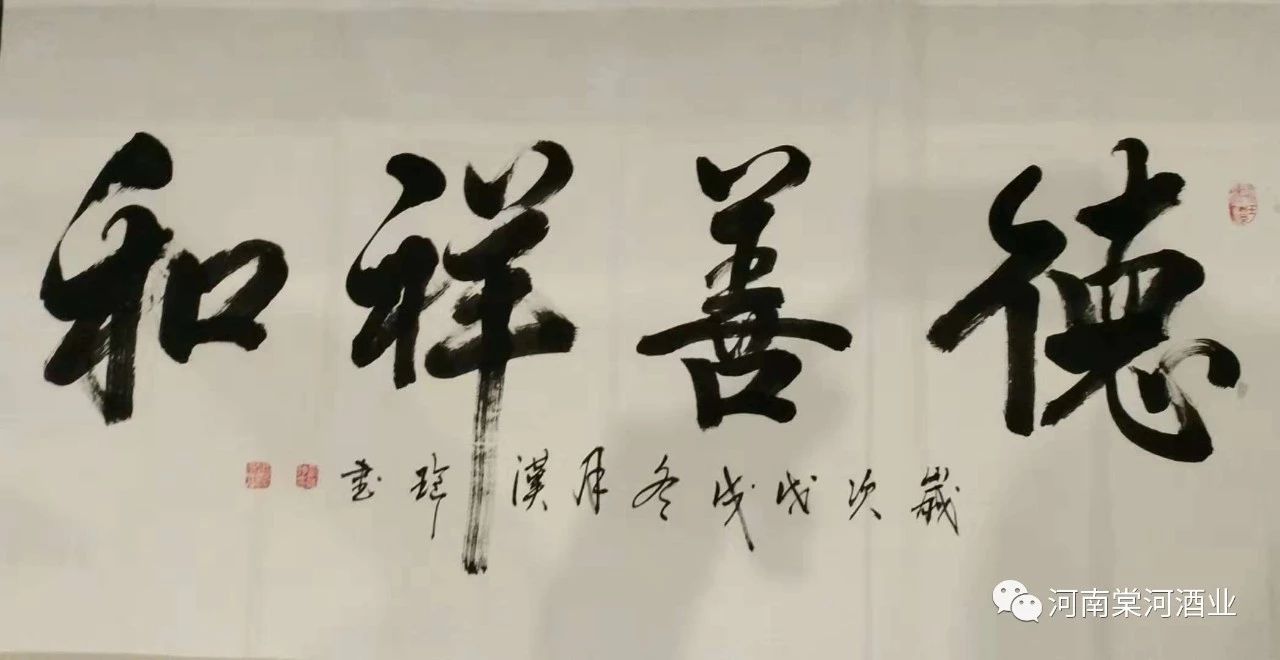 德善祥和
歲次戊戌冬月漢璋書
河南棠河酒业